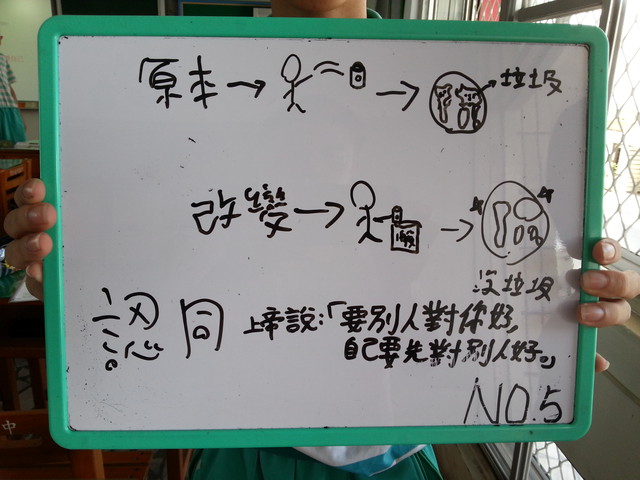 原本→ → 垃圾
改變→ →
沒垃圾
認同 上帝說:「要別人對你好,
自己要先對別人好。」
NO.5
中